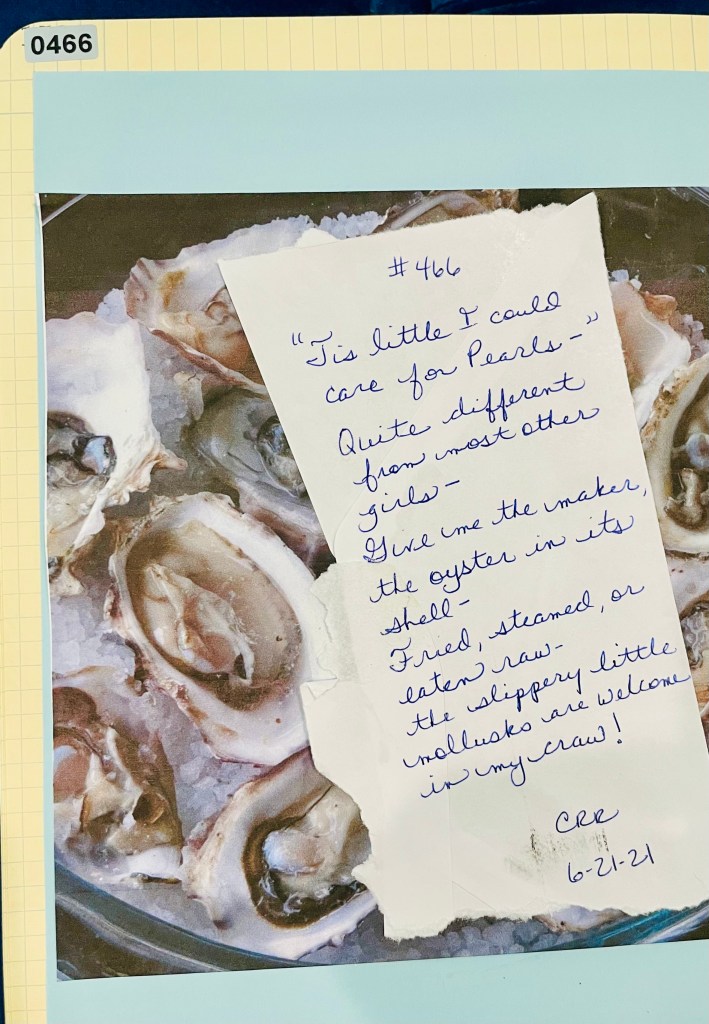 0466
#466
"Tis little I could
care for Pearls-"
Quite different
from most other
girls-
Give me the maker,
the oyster in its
shell-
Fried, steamed, or
eaten raw-
the slippery little
mollusks are welcome
in my craw!
CRR
6-21-21